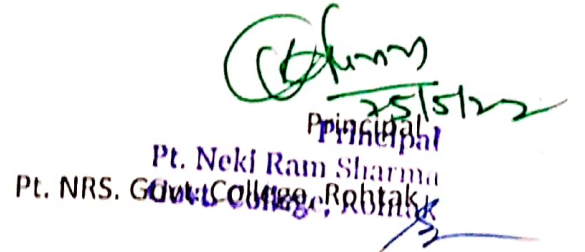 25/5/22
Principal
Principal
Pt. Neki Ram Sharma
Pt. NRS. Govt. College, Rohtak
Govt. College, Rohtak